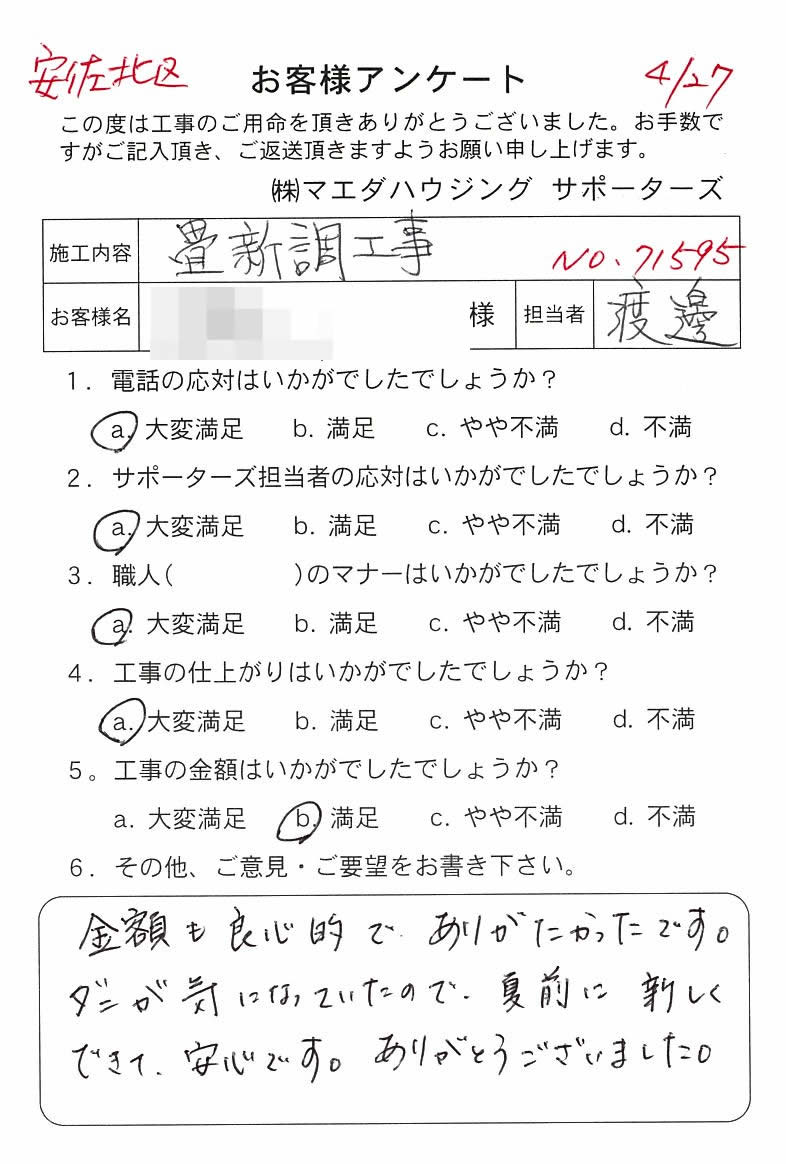 安佐北区 お客様アンケート 4/27
この度は工事のご用命を頂きありがとうございました。お手数で
すがご記入頂き、ご返送頂きますようお願い申し上げます。
㈱マエダハウジング サポーターズ
施工内容 畳新調工事 NO.71595
お客様名 様 担当者 渡邊
1. 電話の応対はいかがでしたでしょうか？
a. 大変満足 b. 満足 c. やや不満 d. 不満
2. サポーターズ担当者の応対はいかがでしたでしょうか？
a. 大変満足 b. 満足 c. やや不満 d. 不満
3. 職人( )のマナーはいかがでしたでしょうか？
a. 大変満足 b. 満足 c. やや不満 d. 不満
4. 工事の仕上がりはいかがでしたでしょうか？
a. 大変満足 b. 満足 c. やや不満 d. 不満
5。工事の金額はいかがでしたでしょうか？
a. 大変満足 b. 満足 c. やや不満 d. 不満
6. その他、ご意見・ご要望をお書き下さい。
金額も良心的で、ありがたかったです。
ダニが気になっていたので、夏前に新しく
できて、安心です。ありがとうございました。